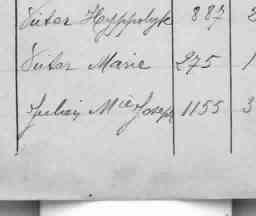 Victor Hyppolyte 887 2
Victor Marie 275 1
Julien Mie Joseph 1155 3